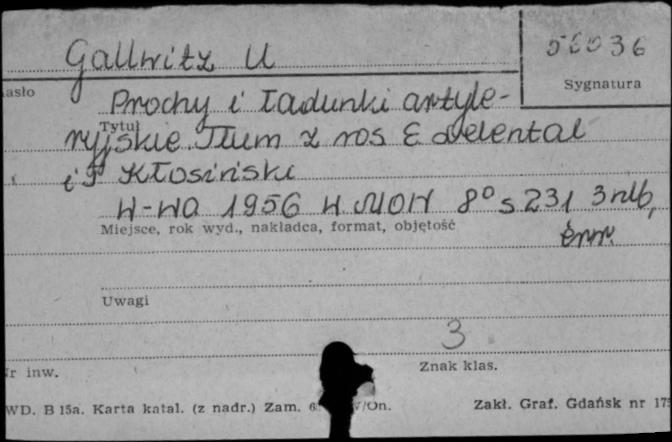 Gallwitz U
56036
asło
Sygnatura
Prochy i ładunki artyle-
Tytuł
ryjskie. Tłum z ros E
i P Kłosiński
W-wa 1956 W. MON 8° s 231 3 nlb,
Miejsce, rok wyd., nakładca, format, objętość
Uwagi
3
r inw.
Znak klas.
WD. B 15a. Karta katal. (z nadr.) Zam. 6 /On.
Zakł. Graf. Gdańsk nr 175